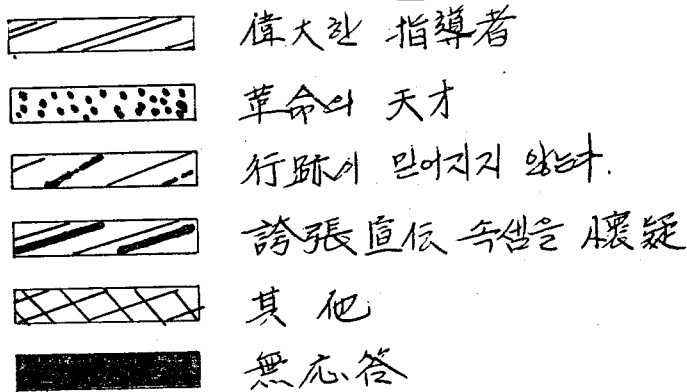 偉大한 指導者
革命의 天才
行跡이 믿어지지 않는다.
誇張宣伝 속셈을 懷疑
其他
無応答